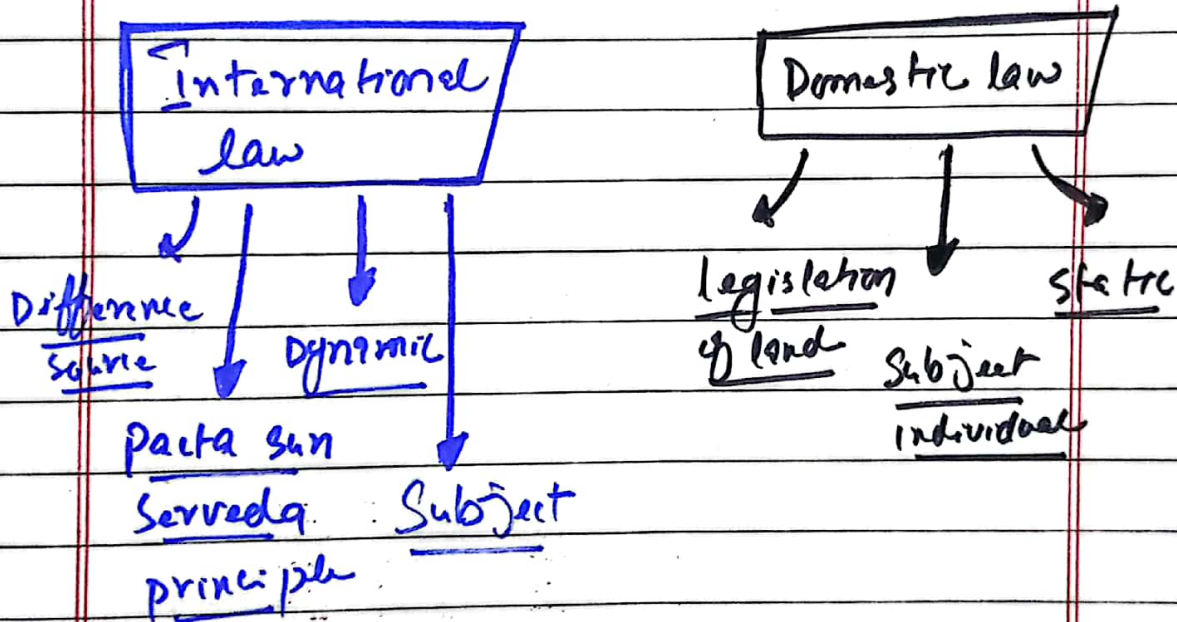 International
law
Domestic law
Difference
source
Dynamic
Pacta sun
Serveda
principle
Subject
legislation
of land
Subject
individual
static